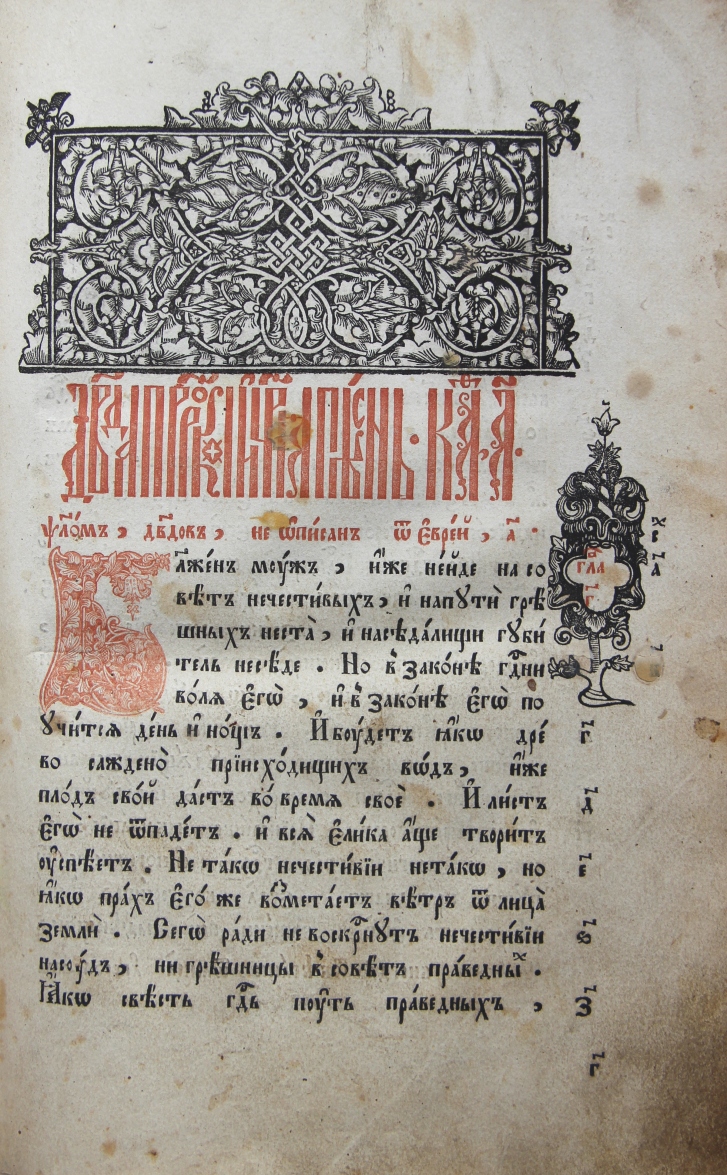 Дв҃да прⷪ҇рка и цр҃ѧ пѣснь. каѳ. а҃.
ѱало́мъ, дв҃довъ, не ѡ҆пи́санъ ѿ є҆вре́й, а҃ ·
Блаже́нъ моу́жъ, и҆́же не́йде на со
вѣ́тъ нечести́выхъ, и҆ напꙋтѝ грѣ́
шныхъ неста̀, и҆ насѣда́лищи гꙋби́
тель несѣ́де . Но в̾ зако́нѣ гдⷭ҇ни
во́лѧ є҆гѡ̀, и҆ в̾ зако́нѣ є҆гѡ̀ по
ꙋчи́тсѧ де́нь и҆ но́щь . И҆ бꙋ́детъ ꙗ҆́кѡ дре́
во сажденѐ при и҆схо́дищихъ во́дъ, и҆́же
пло́дъ сво́й да́стъ во́ времѧ своѐ . И҆ ли́стъ
є҆гѡ̀ не ѿпаде́тъ . и҆ всѧ̀ є҆ли́ка а҆́ще твори́тъ
ᲂу҆спѣ́етъ . Не та́кѡ нечести́вїи не та́кѡ, но
ꙗ҆́кѡ пра́хъ є҆го́ же возмета́етъ вѣ́тръ ѿ лица̀
землѝ . Сегѡ̀ ра́ди не воскрⷭ҇нꙋтъ нечести́вїи
на сꙋ́дъ, ни грѣ́шницы в̾ совѣ́тъ пра́ведныⷯ .
Ꙗ҆́кѡ свѣ́сть гдⷭ҇ь пꙋ́ть пра́ведныхъ ,
гла
г҃
г҃
д҃
е҃
ѕ҃
з҃
г҃